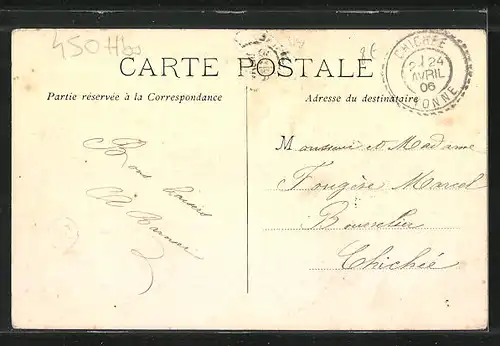 CARTE POSTALE
Partie réservée à la Correspondance
Adresse du destinataire
CHICHÉE
24
AVRIL
06
YONNE
Bons baisers
Monsieur et Madame
Fougère Marcel
Chichée